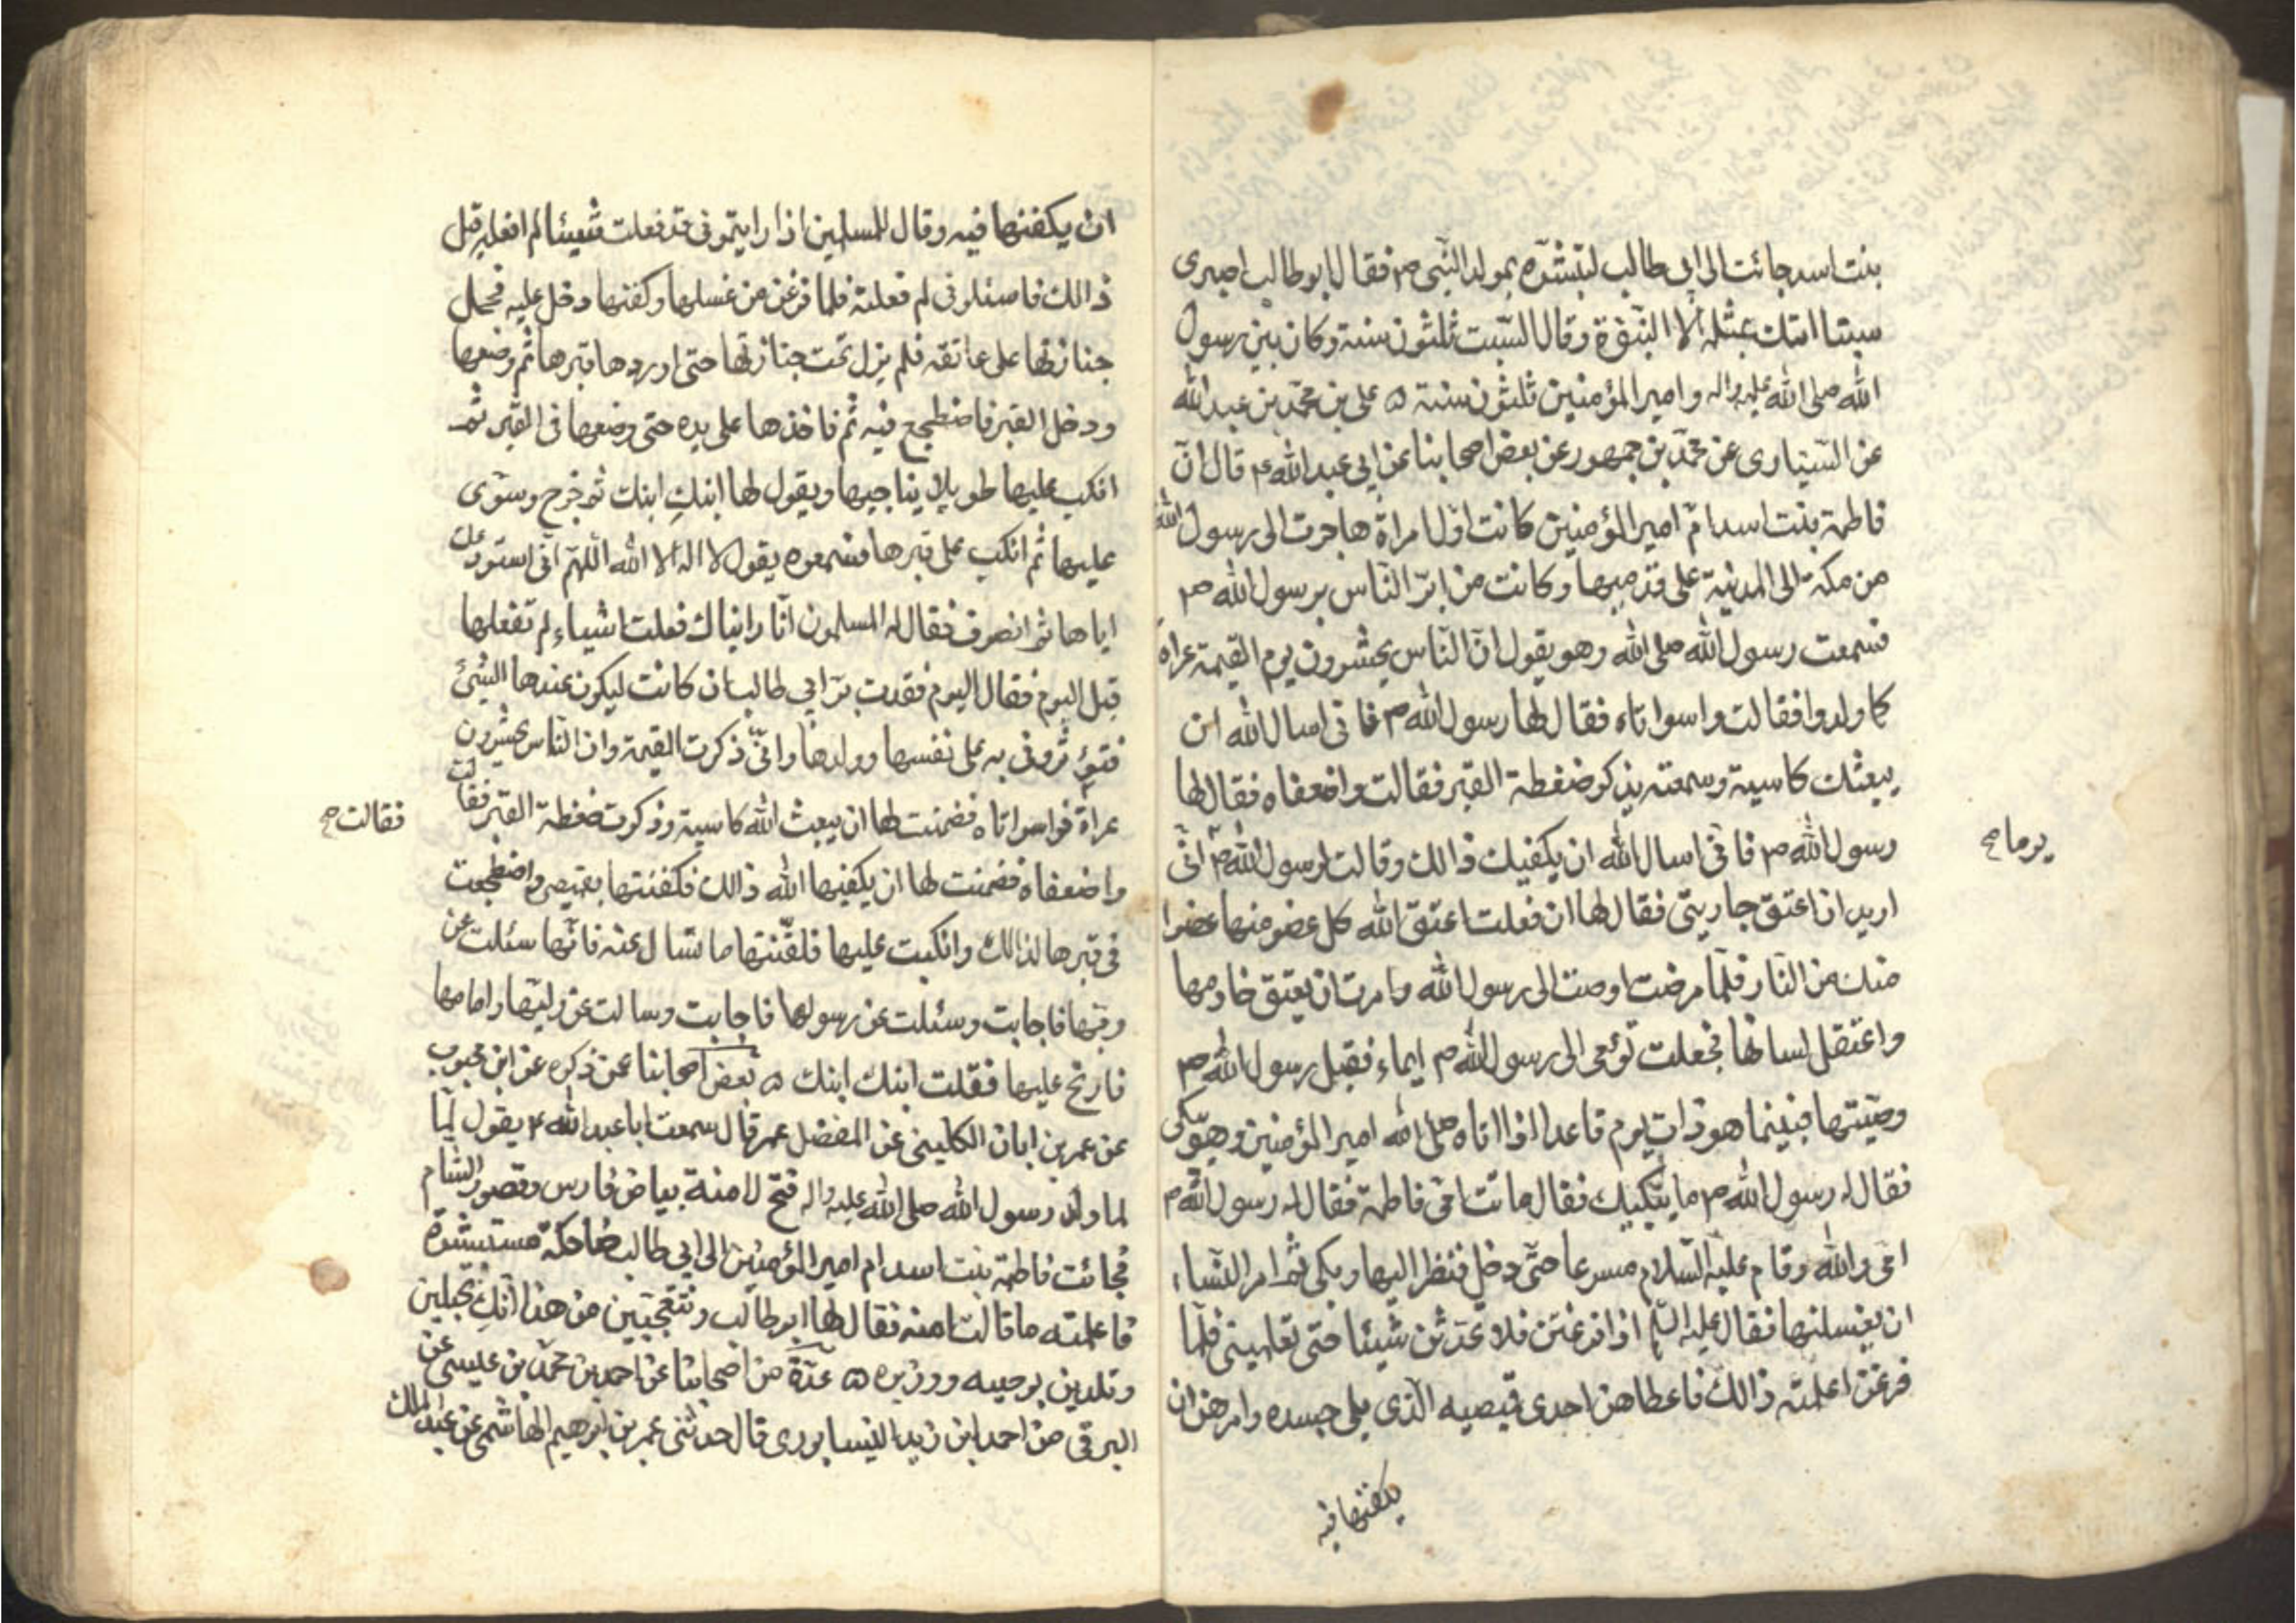 بنت اسد جائت الى ابى طالب لتبشره بمولد النبى ص فقال ابو طالب اصبرى
سبتا اتك بمثله الا النبوة وقال السبت ثلثون سنة وكان بين رسول
الله صلى الله عليه واله وامير المؤمنين ثلثون سنة ۵ على بن محمد بن عبد الله
عن السيارى عن محمد بن جمهور عن بعض اصحابنا عن ابى عبد الله ع قال ان
فاطمة بنت اسد ام امير المؤمنين كانت اول امراة هاجرت الى رسول الله
من مكة الى المدينة على قدميها وكانت من ابر الناس برسول الله ص
فسمعت رسول الله صلى الله وهو يقول ان الناس يحشرون يوم القيمة عراة
كما ولدوا فقالت واسواتاه فقال لها رسول الله ص فانى اسال الله ان
يبعثك كاسية وسمعته يذكر ضغطة القبر فقالت واضعفاه فقال لها
رسول الله ص فانى اسال الله ان يكفيك ذالك وقالت لرسول الله ص انى
يوما صح
اريد ان اعتق جاريتى فقال لها ان فعلت اعتق الله كل عضو منها عضوا
منك من النار فلما مرضت اوصت الى رسول الله وامرت ان يعتق خادمها
واعتقل لسانها فجعلت تؤمى الى رسول الله ص ايماء فقبل رسول الله ص
وصيتها فبينما هو ذات يوم قاعد اذا اتاه صلى الله امير المؤمنين وهو يبكى
فقال له رسول الله ص ما يبكيك فقال ماتت امى فاطمة فقال له رسول الله ص
امى والله وقام عليه السلام مسرعا حتى دخل فنظر اليها وبكى ثم امر النساء
ان يغسلنها فقال عليه السلم اذا فرغتن فلا تحدثن شيئا حتى تعلمننى فلما
فرغن اعلمنه ذالك فاعطاهن احدى قميصيه الذى يلى جسده وامرهن ان
يكفنها فيه
ان يكفنها فيه وقال للمسلمين اذا رايتمونى قد فعلت شيئا لم افعله قبل
ذالك فاسئلونى لم فعلته فلما فرغن من غسلها وكفنها دخل عليه فحمل
جنازتها على عاتقه فلم يزل تحت جنازتها حتى اوردها قبرها ثم وضعها
ودخل القبر فاضطجع فيه ثم فاخذها على يده حتى وضعها فى القبر ثم
انكب عليها طويلا يناجيها ويقول لها ابنك ابنك ثم خرج وسوى
عليها ثم انكب على قبرها فسمعوه يقول لا اله الا الله اللهم انى استودعك
اياها ثم انصرف فقال له المسلمون انا رايناك فعلت اشياء لم تفعلها
قبل اليوم فقال اليوم فقدت بر ابى طالب ان كانت ليكون عندها الشئ
فتؤثرونى به على نفسها وولدها وانى ذكرت القيمة وان الناس يحشرون
عراة فواسواتاه فضمنت لها ان يبعث الله كاسية وذكرت ضغطة القبر فقالت
فقالت صح
واضعفاه فضمنت لها ان يكفيها الله ذالك فكفنتها بقميصى واضطجعت
فى قبرها لذالك وانكبت عليها فلقنتها ما تسال عنه فانها سئلت عن
ربها فاجابت وسئلت عن رسولها فاجابت وسالت عن وليها وامامها
فارتج عليها فقلت ابنك ابنك ۵ بعض اصحابنا عمن ذكره عن ابن محبوب
عن عمر بن ابان الكلينى عن المفضل عمر قال سمعت ابا عبد الله ع يقول لما
لما ولد رسول الله صلى الله عليه واله فتح لامنة بياض فارس وقصور الشام
فجائت فاطمة بنت اسد ام امير المؤمنين الى ابى طالب ضاحكة مستبشرة
فاعلمته ما قالت امنه فقال لها ابو طالب وتتعجبين من هذا انك تحبلين
وتلدين بوصيه ووزيره ۵ عدة من اصحابنا عن احمد بن محمد بن عيسى عن
البرقى عن احمد ابن زيد النيسابورى قال حدثنى عمر بن ابرهيم الهاشمى عن عبد الملك